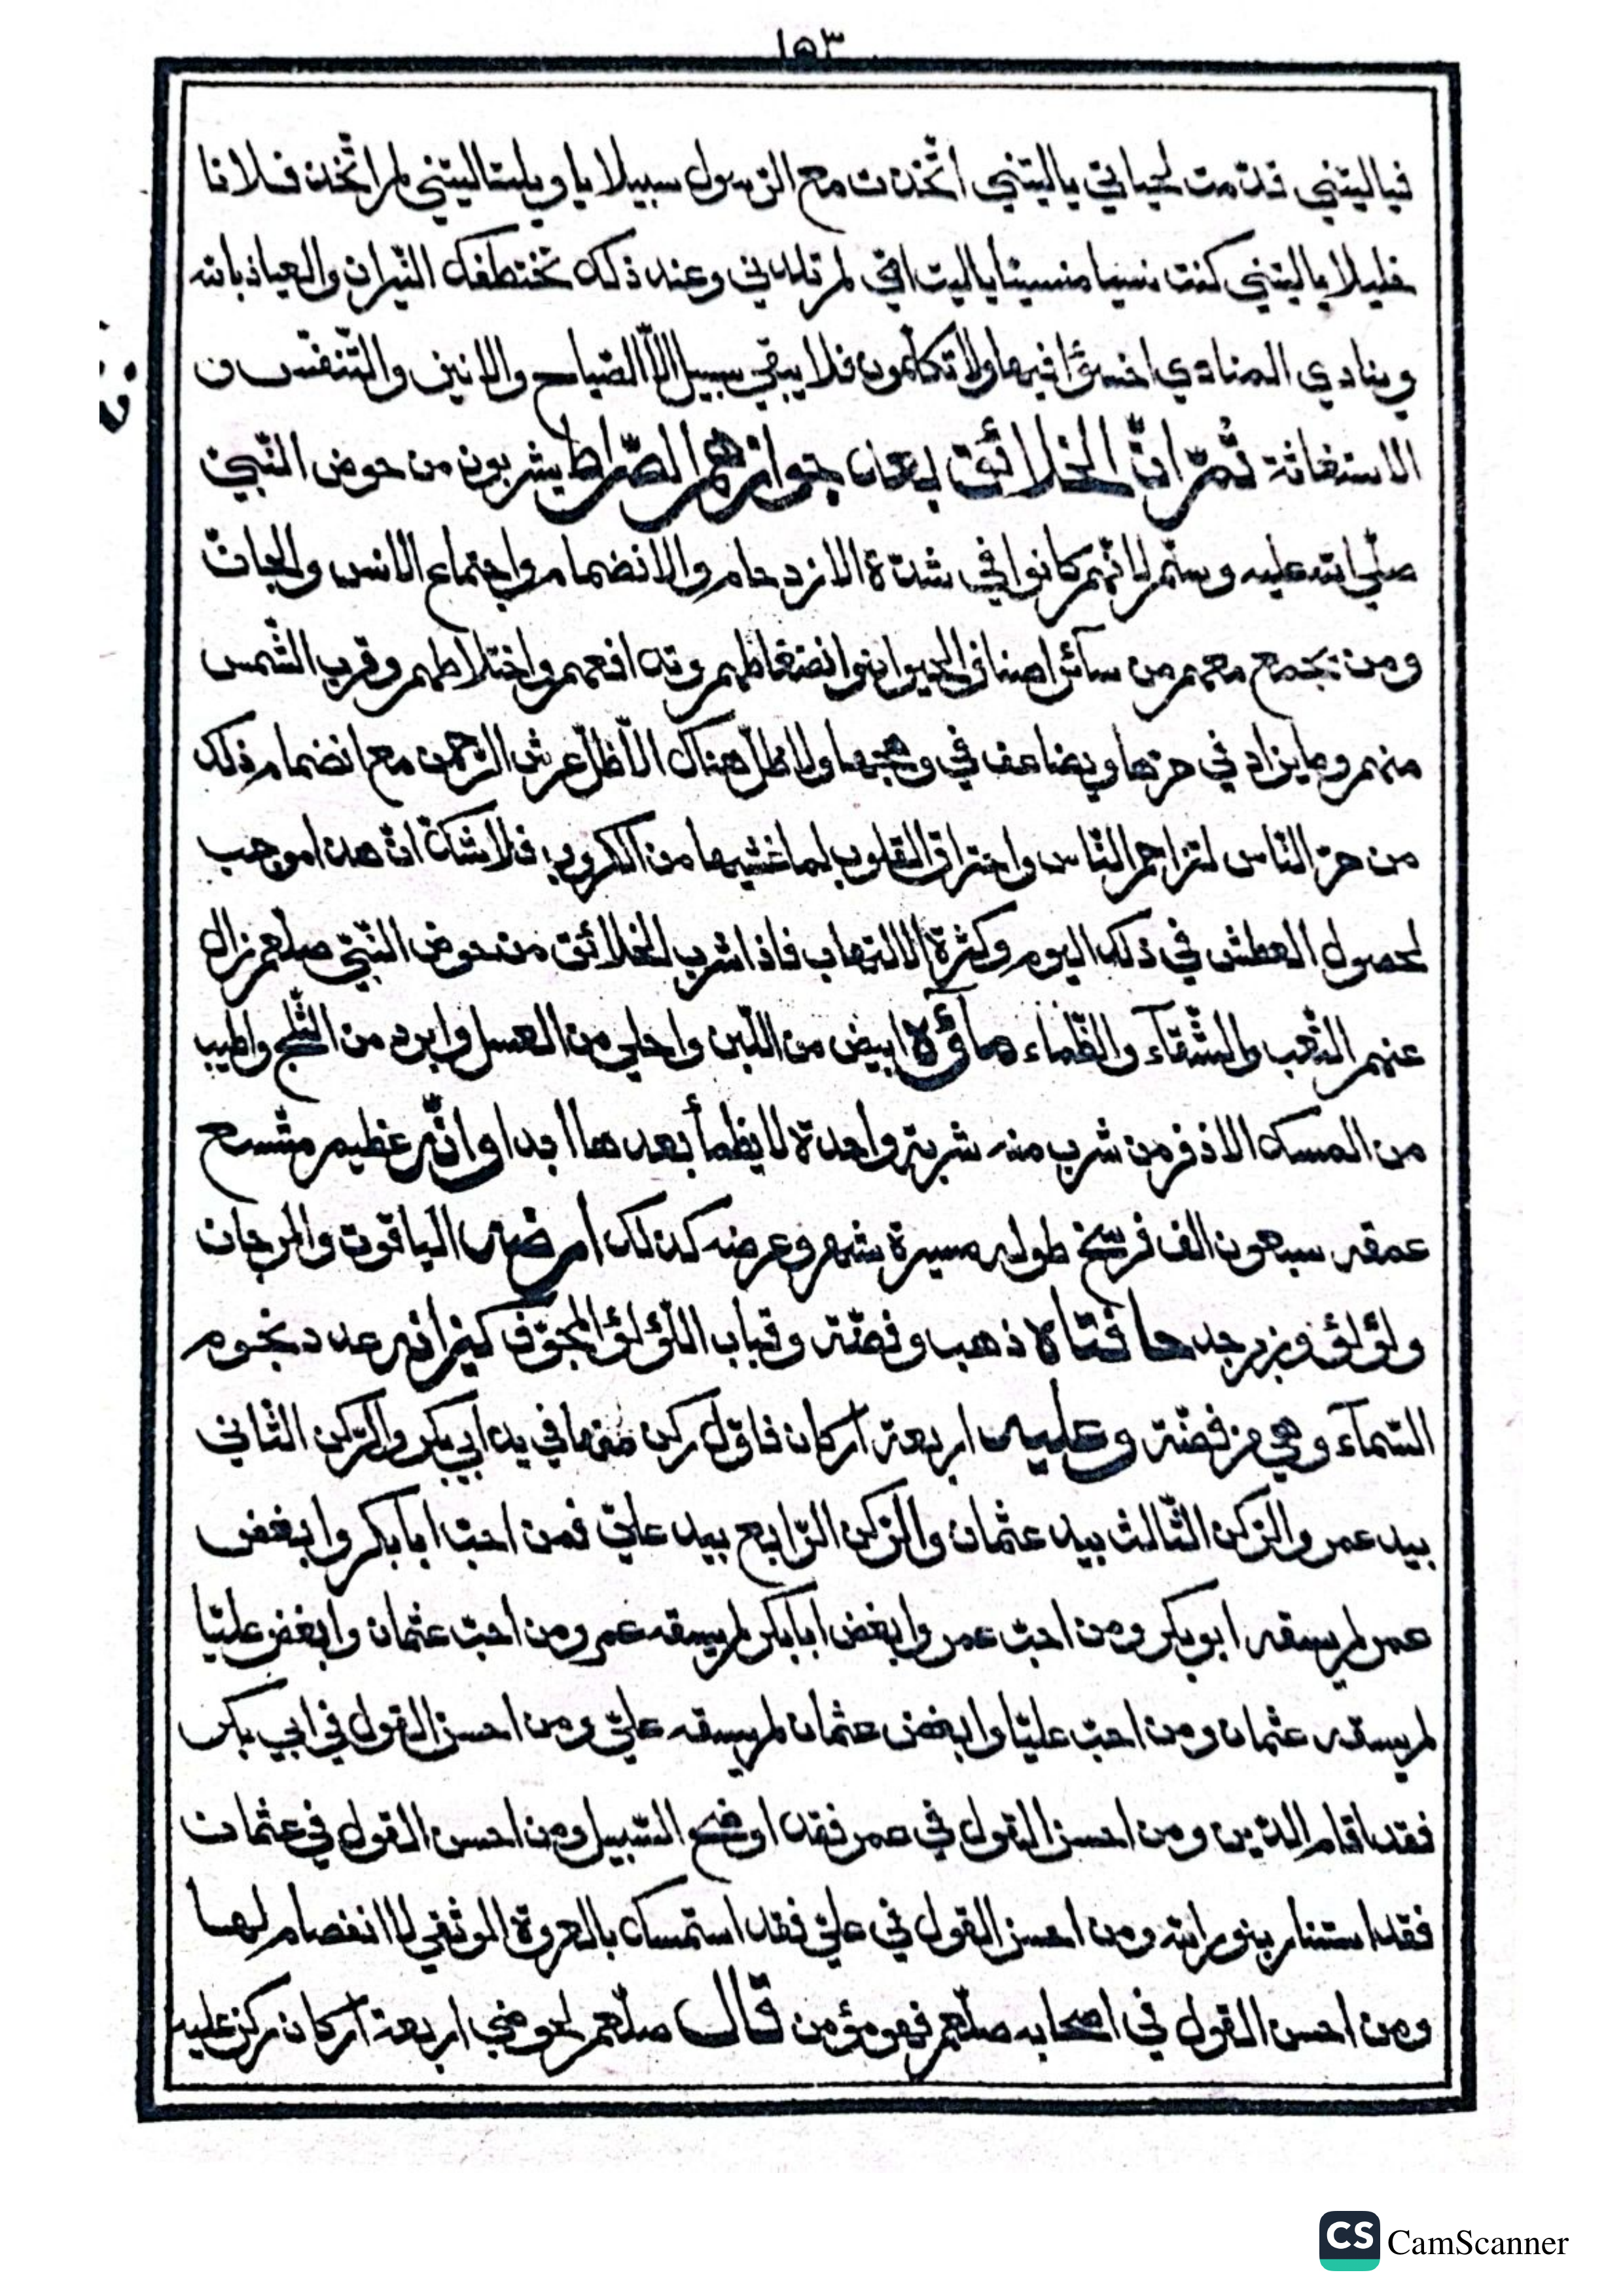 ١٥٣
فياليتني قدّمت لحياتي ياليتني اتّخذت مع الرّسول سبيلا يا ويلتا ليتني لم اتّخذ فلانا
خليلا ياليتني كنت نسيا منسيّا ياليت امّي لم تلدني وعند ذلك تختطفك النّيران والعياذ بالله
وينادي المنادي اخسؤا فيها ولا تكلّمون فلا يبقي سبيل الّا الصّياح والانين والتّنفّس و
الاستغاثة ثمّ انّ الخلائق بعد جوازهم الصّراط يشربون من حوض النّبيّ
صلّي الله عليه وسلّم لانّهم كانوا في شدّة الازدحام والانضمام واجتماع الانس والجانّ
ومن يجمع معهم من سائر اصناف الحيوان وانضغاطهم وتدافعهم واختلاطهم وقرب الشّمس
منهم وما يزاد في حرّها ويضاعف في وهجها ولا ظلّ هناك الّا ظلّ عرش الرّحمن مع انضمام ذلك
من حرّ النّاس لتزاحم النّاس واحتراق القلوب لما غشيها من الكروب فلا شكّ انّ هذا موجب
لحصول العطش في ذلك اليوم وكثرة الالتهاب فاذا شرب الخلائق من حوض النّبيّ صلعم زال
عنهم التّعب والشّقآء والظّماء مآؤه ابيض من اللّبن واحلي من العسل وابرد من الثّلج واطيب
من المسك الاذفر من شرب منه شربة واحدة لا يظمأ بعدها ابدا وانّه عظيم متّسع
عمقه سبعون الف فرسخ طوله مسيرة شهر وعرضه كذلك ارضه الياقوت والمرجان
ولؤلؤ وزبرجد حافتاه ذهب وفضّة وقباب اللّؤلؤ المجوّف كيزانه عدد نجوم
السّمآء وهي من فضّة وعليه اربعة اركان فاوّل ركن منها في يد ابي بكر والرّكن الثّاني
بيد عمر والرّكن الثّالث بيد عثمان والرّكن الرّابع بيد عليّ فمن احبّ ابا بكر وابغض
عمر لم يسقه ابو بكر ومن احبّ عمر وابغض ابا بكر لم يسقه عمر ومن احبّ عثمان وابغض عليّا
لم يسقه عثمان ومن احبّ عليّا وابغض عثمان لم يسقه عليّ ومن احسن القول في ابي بكر
فقد اقام الدّين ومن احسن القول في عمر فقد اوضح السّبيل ومن احسن القول في عثمان
فقد استنار بنور الله ومن احسن القول في عليّ فقد استمسك بالعروة الوثقي لا انفصام لها
ومن احسن القول في اصحابه صلّعم فهو مؤمن قال صلّعم لحوضي اربعة اركان ركن عليه
CS CamScanner